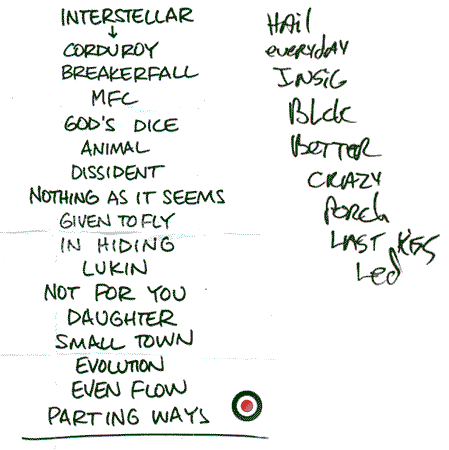 INTERSTELLAR
↓
CORDUROY
BREAKERFALL
MFC
GOD'S DICE
ANIMAL
DISSIDENT
NOTHING AS IT SEEMS
GIVEN TO FLY
IN HIDING
LUKIN
NOT FOR YOU
DAUGHTER
SMALL TOWN
EVOLUTION
EVEN FLOW
PARTING WAYS
HAiL
everydAy
INSiG
BLck
BETTER
CRAZY
Porch
LAST KiSS
Led